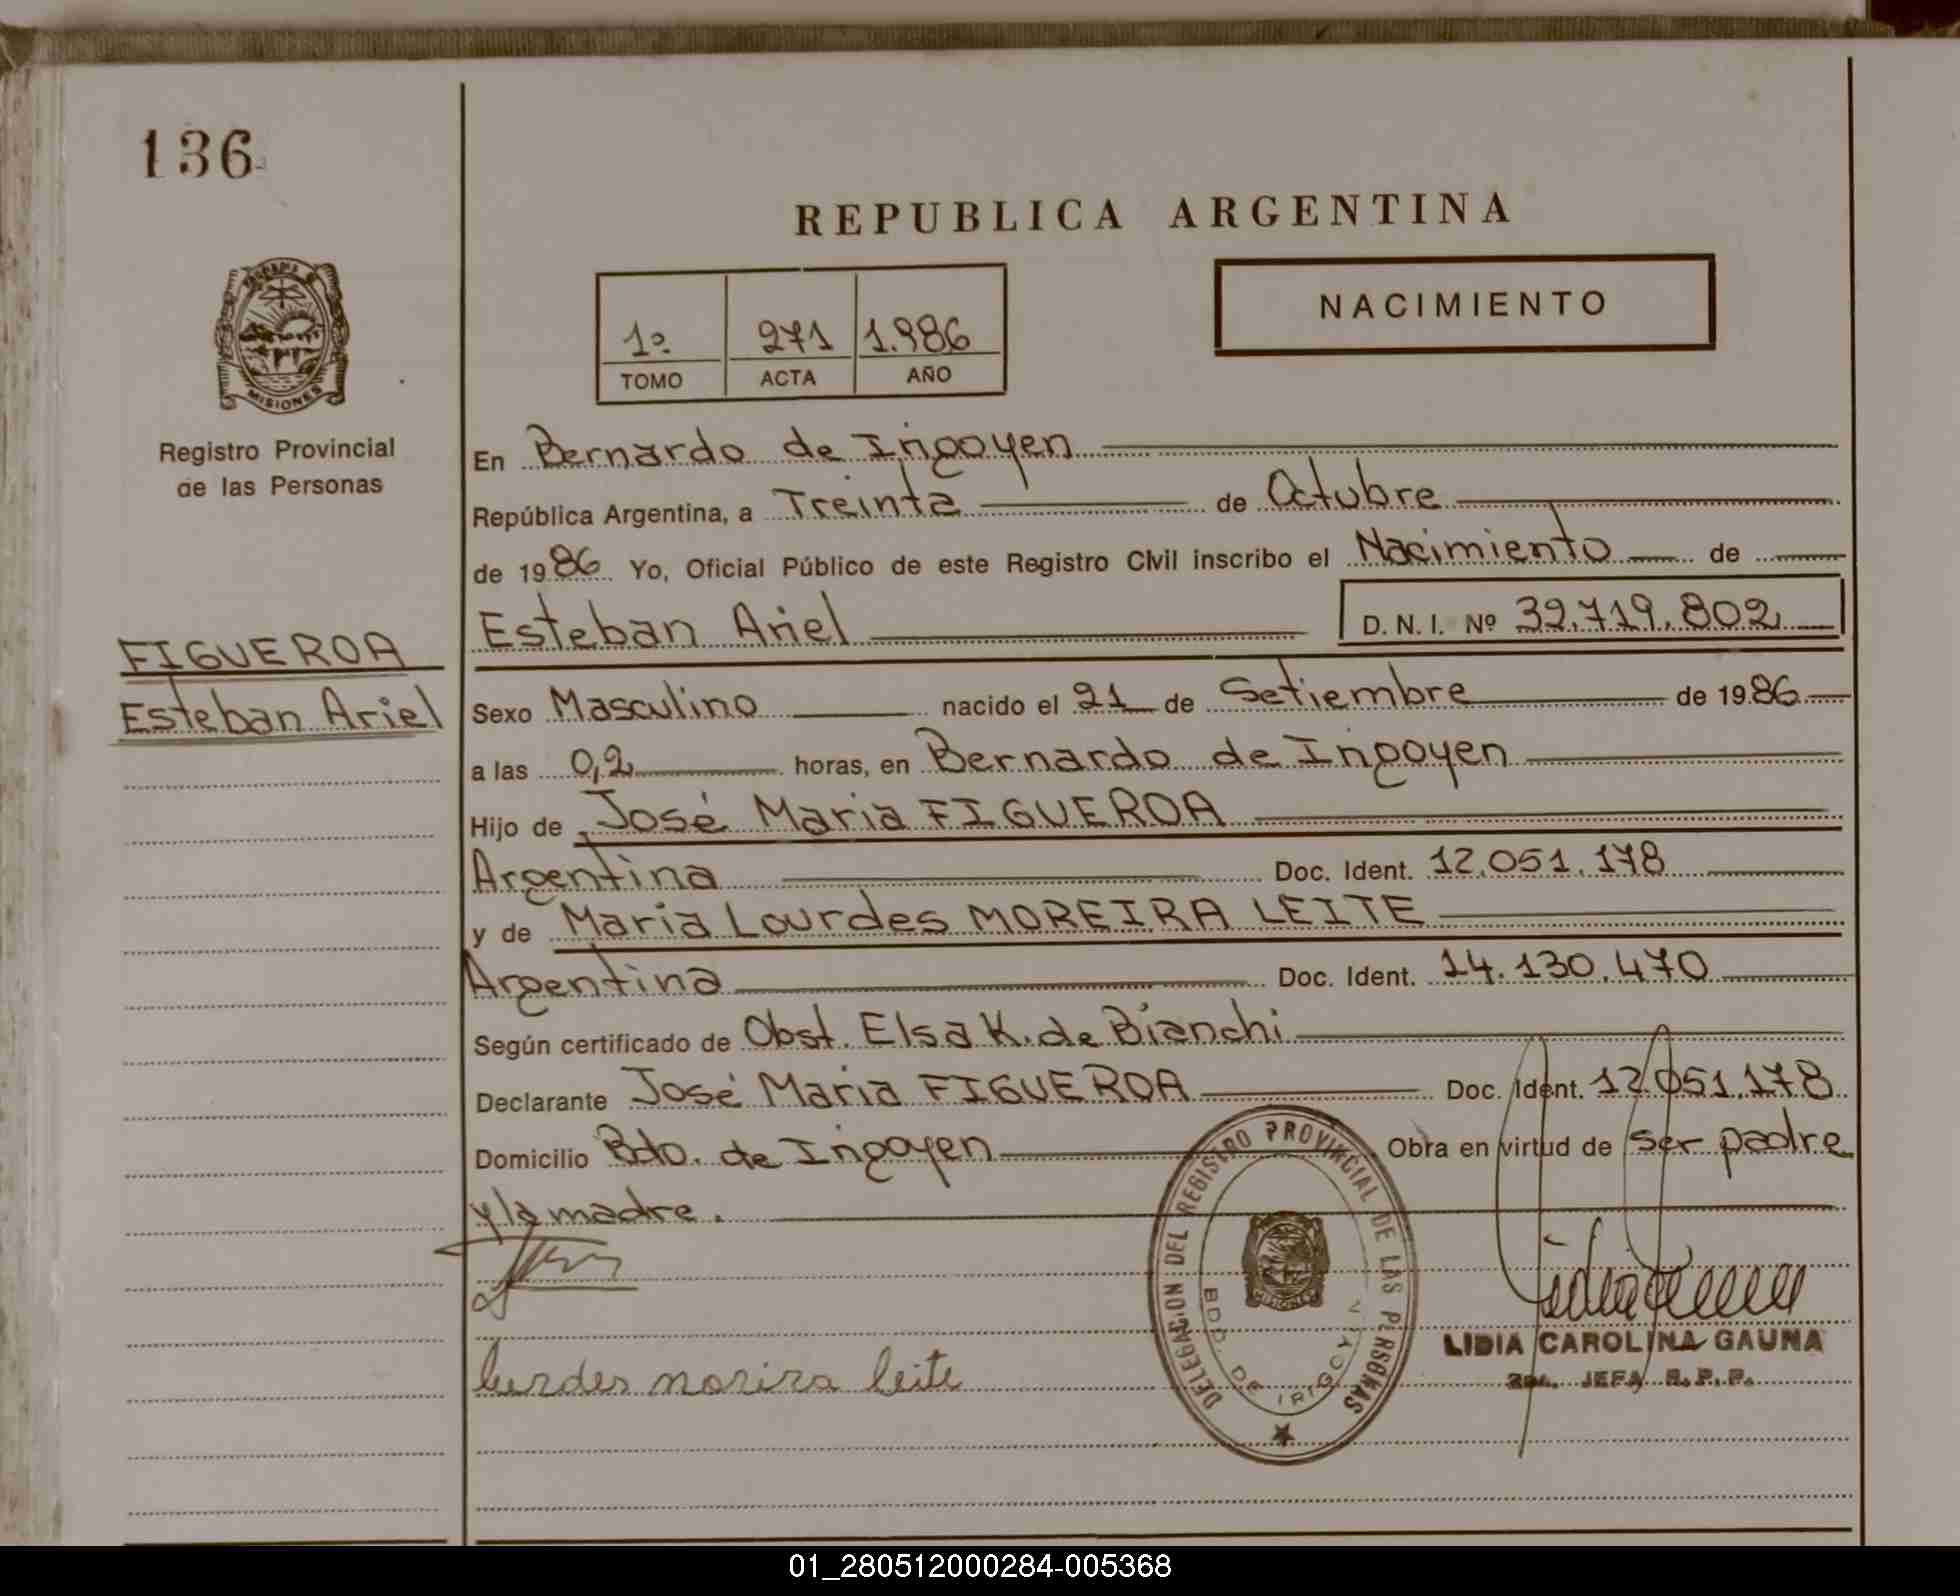 136
REPUBLICA ARGENTINA
NACIMIENTO
1º 271 1.986
TOMO ACTA AÑO
MISIONES
Registro Provincial
de las Personas
FIGUEROA
Esteban Ariel
En Bernardo de Irigoyen
República Argentina, a Treinta de Octubre
de 1986 Yo, Oficial Público de este Registro Civil inscribo el Nacimiento de
Esteban Ariel D.N.I. Nº 32.719.802
Sexo Masculino nacido el 21 de Setiembre de 1986
a las 0,2 horas, en Bernardo de Irigoyen
Hijo de José Maria FIGUEROA
Argentina Doc. Ident. 12.051.178
y de Maria Lourdes MOREIRA LEITE
Argentina Doc. Ident. 14.130.470
Según certificado de Obst. Elsa K. de Bianchi
Declarante José Maria FIGUEROA Doc. Ident. 12.051.178
Domicilio Bdo. de Irigoyen Obra en virtud de ser padre
y la madre.
lurdes morira leite
DELEGACION DEL REGISTRO PROVINCIAL DE LAS PERSONAS
BDO. DE IRIGOYEN
MISIONES
LIDIA CAROLINA GAUNA
2da. JEFA R.P.P.
01_280512000284-005368